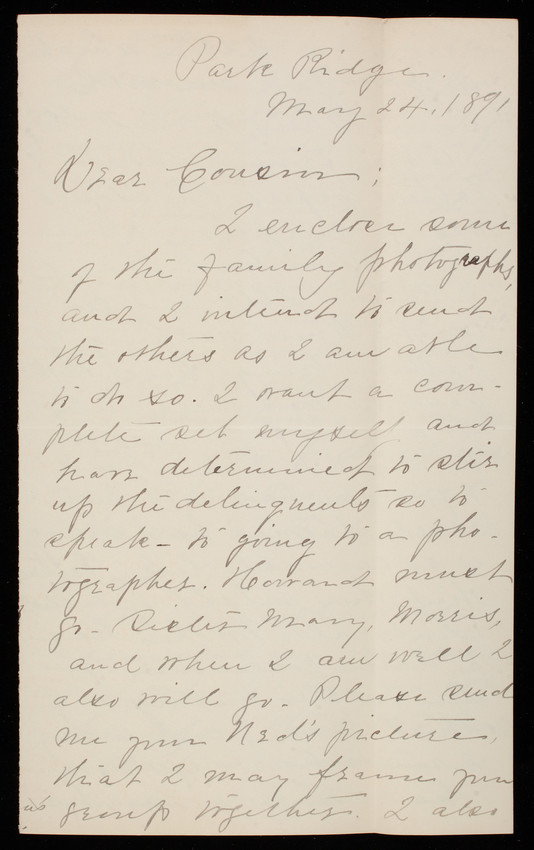 Park Ridge.
May 24, 1891
Dear Cousin;
I enclose some
of the family photographs,
and I intend to send
the others as I am able
to do so. I want a com-
plete set myself and
have determined to stir
up the delinquents so to
speak - to going to a pho-
tographer. Howard must
go - Sister Mary, Morris,
and when I am well I
also will go. Please send
me your Ned's picture,
that I may frame your
group together. I also